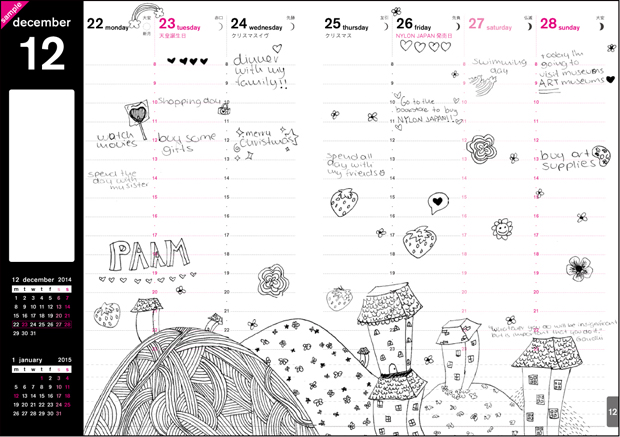 sample
december
12
22 monday
大安
新月
23 tuesday
赤口
天皇誕生日
24 wednesday
先勝
クリスマスイヴ
25 thursday
友引
クリスマス
26 friday
先負
NYLON JAPAN 発売日
27 saturday
仏滅
28 sunday
大安
dinner
with my
family!!
swimming
day
today I'm
going to
visit museums
ART museums
shopping day
Go to the
bookstore to buy
NYLON JAPAN!!
watch
movies
buy some
gifts
merry
Christmas
spend all
day with
my friends
buy art
supplies
spend the
day with
my sister
PAAM
12 december 2014
m t w t f s s
1 2 3 4 5 6 7
8 9 10 11 12 13 14
15 16 17 18 19 20 21
22 23 24 25 26 27 28
29 30 31
1 january 2015
m t w t f s s
1 2 3 4
5 6 7 8 9 10 11
12 13 14 15 16 17 18
19 20 21 22 23 24 25
26 27 28 29 30 31
"Whatever you do will be insignificant
but is important that you do it."
Gandhi
12